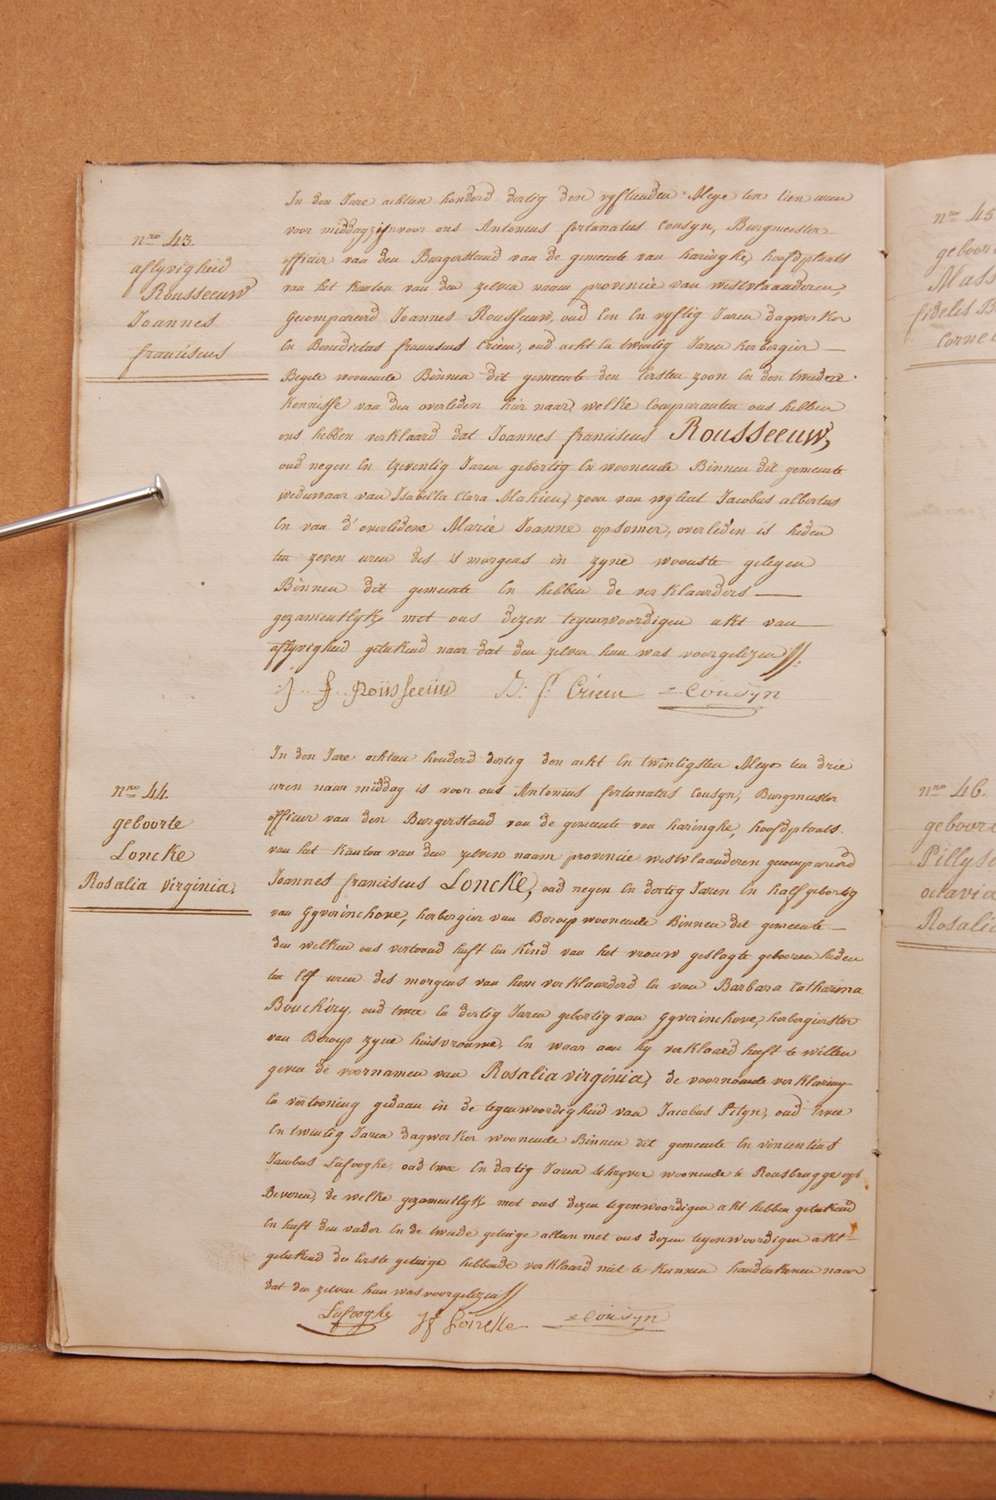 nro 43.
aflyvigheid
Rousseeuw
Joannes
franciscus
In den Jare achtien honderd dertig den vyftienden Meye ten tien uren
voor middag zyn voor ons Antonius fortunatus Cousyn, Burgmeester
officier van den Burgerstand van de gemeente van haringhe, hoofdplaets
van het kanton van den zelven naam provincie van westvlaanderen,
Gecompareerd Joannes Rousseeuw, oud een en vyftig Jaren dagwerker
En Benedictus franciscus Crieu, oud acht en twintig Jaren herbergier
Beyde woonende Binnen dit gemeente den eersten zoon en den tweeden
kennisse van den overleden hier naar, welke Comparanten ons hebben
ons hebben verklaard dat Joannes franciscus Rousseeuw,
oud negen en tzeventig Jaren geboortig en woonende Binnen dit gemeente
weduwaar van Isabella Clara Mahieu, zoon van wylent Jacobus albertus
En van d'overledene Marie Joanne opsomer, overleden is heden
ten zeven uren des s'morgens in zyne woonste gelegen
Binnen dit gemeente En hebben de verklaarders
gezamentlyk met ons dezen tegenwoordigen akt van
aflyvigheid geteekend naar dat den zelven hun was voorgelezen
J. F. Rousseeuw B. f. Crieu Cousyn
nro 44.
geboorte
Loncke
Rosalia virginia,
In den Jare achtien honderd dertig den acht en twintigsten Meye ten drie
uren naar middag is voor ons Antonius fortunatus Cousyn, Burgmeester
officier van den Burgerstand van de gemeente van haringhe, hoofdplaats
van het kanton van den zelven naam provincie westvlaanderen gecompareerd
Joannes franciscus Loncke, oud negen en dertig Jaren en half geboortig
van Gyverinchove, herbergier van Beroep woonende Binnen dit gemeente
den welken ons vertoond heeft een kind van het vrouw geslagte gebooren heden
ten elf uren des morgens van hem verklaarderd en van Barbara Catharina
Bouchiry, oud twee en dertig Jaren geboortig van Gyverinchove, herbergierster
van Beroep zyne huisvrouwe, en waar aan hy verklaard heeft te willen
geven de voornamen van Rosalia virginia, de voornoemde verklaring
En vertooning gedaan in de tegenwoordigheid van Jacobus Pityn, oud twee
En twintig Jaren dagwerker woonende Binnen dit gemeente En vincentius
Jacobus Lafooghe, oud twee en dertig Jaren schryver woonende te Rousbrugge
Beveren, de welke gezamentlyk met ons dezen tegenwoordigen akt hebben geteekend
En heeft den vader en de tweede getuige allen met ons dezen tegenwoordigen akt
geteekend de eerste getuige hebbende verklaard niet te kunnen handteekenen naar
dat den zelven hun was voorgelezen
Lafooghe Cousyn
nro 45
geboor
Mass
fidelis B
Corne
nro 46.
geboor
Pillys
octavia
Rosali